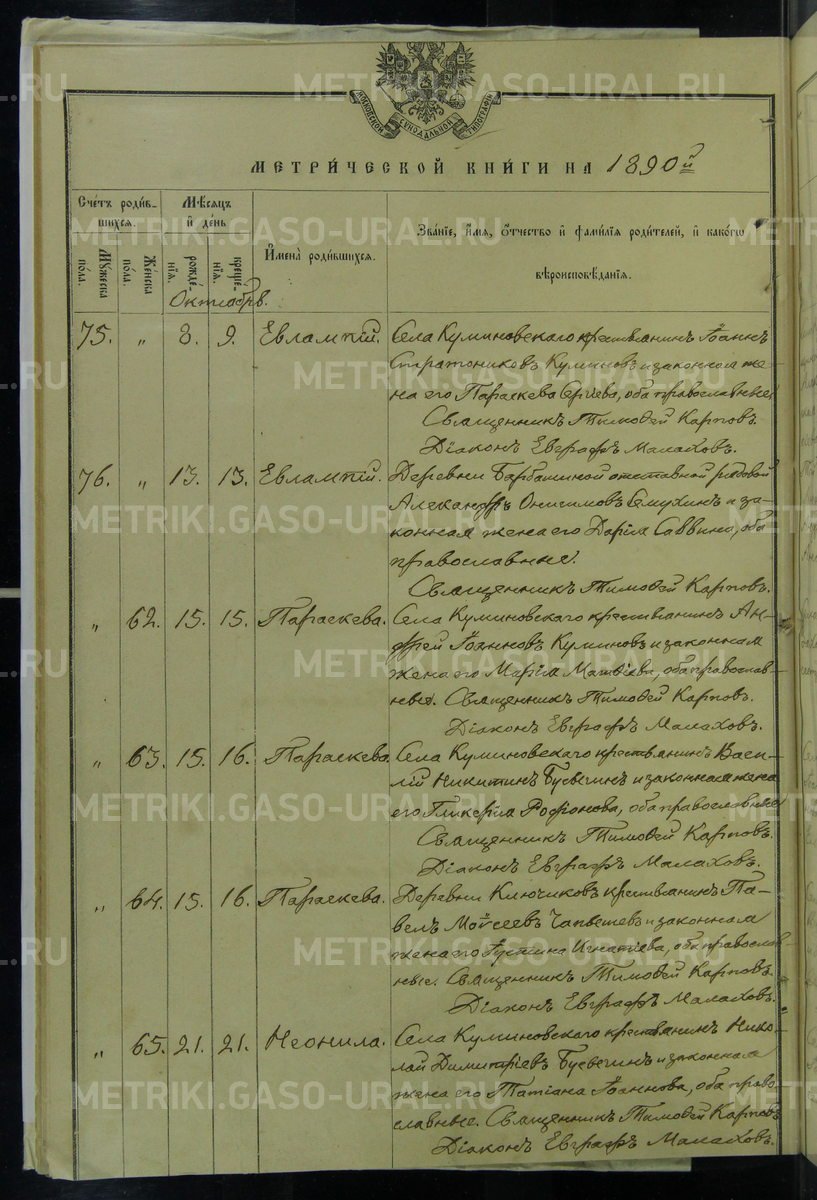 МОСКОВСКОЙ СѴНОДАЛЬНОЙ ТИПОГРАФІИ
МЕТРИ́ЧЕСКОЙ КНИ́ГИ НА 1890й
Сче́тъ роди́в-
шихся.
Мѣ́сяцъ
и҆ де́нь
И҆мена̀ роди́вшихся.
Зва́нїе, и҆́мѧ, ѻ҆́тчество и҆ фами́лїѧ роди́телей, и҆ како́гѡ
вѣроисповѣ́данїѧ.
Мꙋ́жеска по́ла.
Же́нска по́ла.
рожде́-нїѧ.
креще́-нїѧ.
Октябрь.
75. „ 8. 9. Евлампій. Села Куминовскаго крестьянинъ Іоаннъ
Стратониковъ Куминовъ и законная же-
на его Параскева Сергіева, оба православные.
Священникъ Тимоѳей Карповъ.
Діаконъ Евграфъ Малаховъ.
76. „ 13. 13. Евлампій. Деревни Барбашиной отставной рядовой
Александръ Онисимовъ Семухинъ и за-
конная жена его Дарія Саввина, оба
православные.
Священникъ Тимоѳей Карповъ.
„ 62. 15. 15. Параскева. Села Куминовскаго крестьянинъ Ан-
дрей Іоанновъ Куминовъ и законная
жена его Марія Матвѣева, оба православ-
ные. Священникъ Тимоѳей Карповъ.
Діаконъ Евграфъ Малаховъ.
„ 63. 15. 16. Параскева. Села Куминовскаго крестьянинъ Васи-
лій Никитинъ и законная жена
его Гликерія Родіонова, оба православные
Священникъ Тимоѳей Карповъ.
Діаконъ Евграфъ Малаховъ.
„ 64. 15. 16. Параскева. Деревни Ключиковъ крестьянинъ Па-
велъ Моѵсеевъ и законная
жена его Іустина Игнатіева, оба православ-
ные. Священникъ Тимоѳей Карповъ.
Діаконъ Евграфъ Малаховъ.
„ 65. 21. 21. Неонила. Села Куминовскаго крестьянинъ Нико-
лай Димитріевъ и законная
жена его Татіана Іоаннова, оба право-
славные. Священникъ Тимоѳей Карповъ
Діаконъ Евграфъ Малаховъ.
METRIKI.GASO-URAL.RU